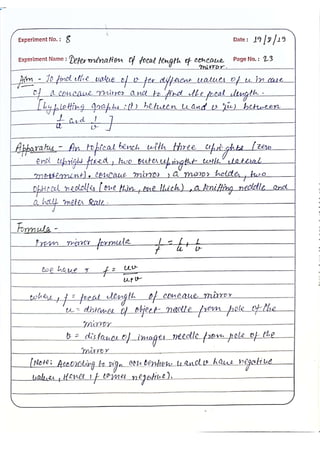 Experiment No.: 8 Date: 19/8/19
Experiment Name: Determination of focal length of concave mirror. Page No.: 23
Aim - To find the value of v for different values of u in case
of a concave mirror and to find the focal length.
[by plotting graphs :(i) between u and v (ii) between
1/u and 1/v]
Apparatus - An optical bench with three uprights (zero
end upright fixed, two outer upright with lateral
movement). concave mirror, a mirror holder, two
optical needles (one thin, one thick), a knitting needle and
a half meter scale.
Formula -
From mirror formula 1/f = 1/u + 1/v
we have f = uv/u+v
where, f = focal length of concave mirror
u = distance of object needle from pole of the
mirror
v = distance of image needle from pole of the
mirror
[Note: According to sign convention u and v have negative
values, Hence f comes negative].